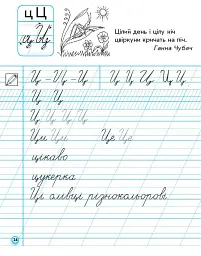 цЦ
Цілий день і цілу ніч
цвіркуни кричать на піч.
Ганна Чубач
ц Ц
Ц - Ц - Ц Ц Ц Ц Ц Ц
Ц Ц
Ц Ц Ц Ц
Ци Ци Це Це
цікаво
цукерка
Ці олівці різнокольорові.